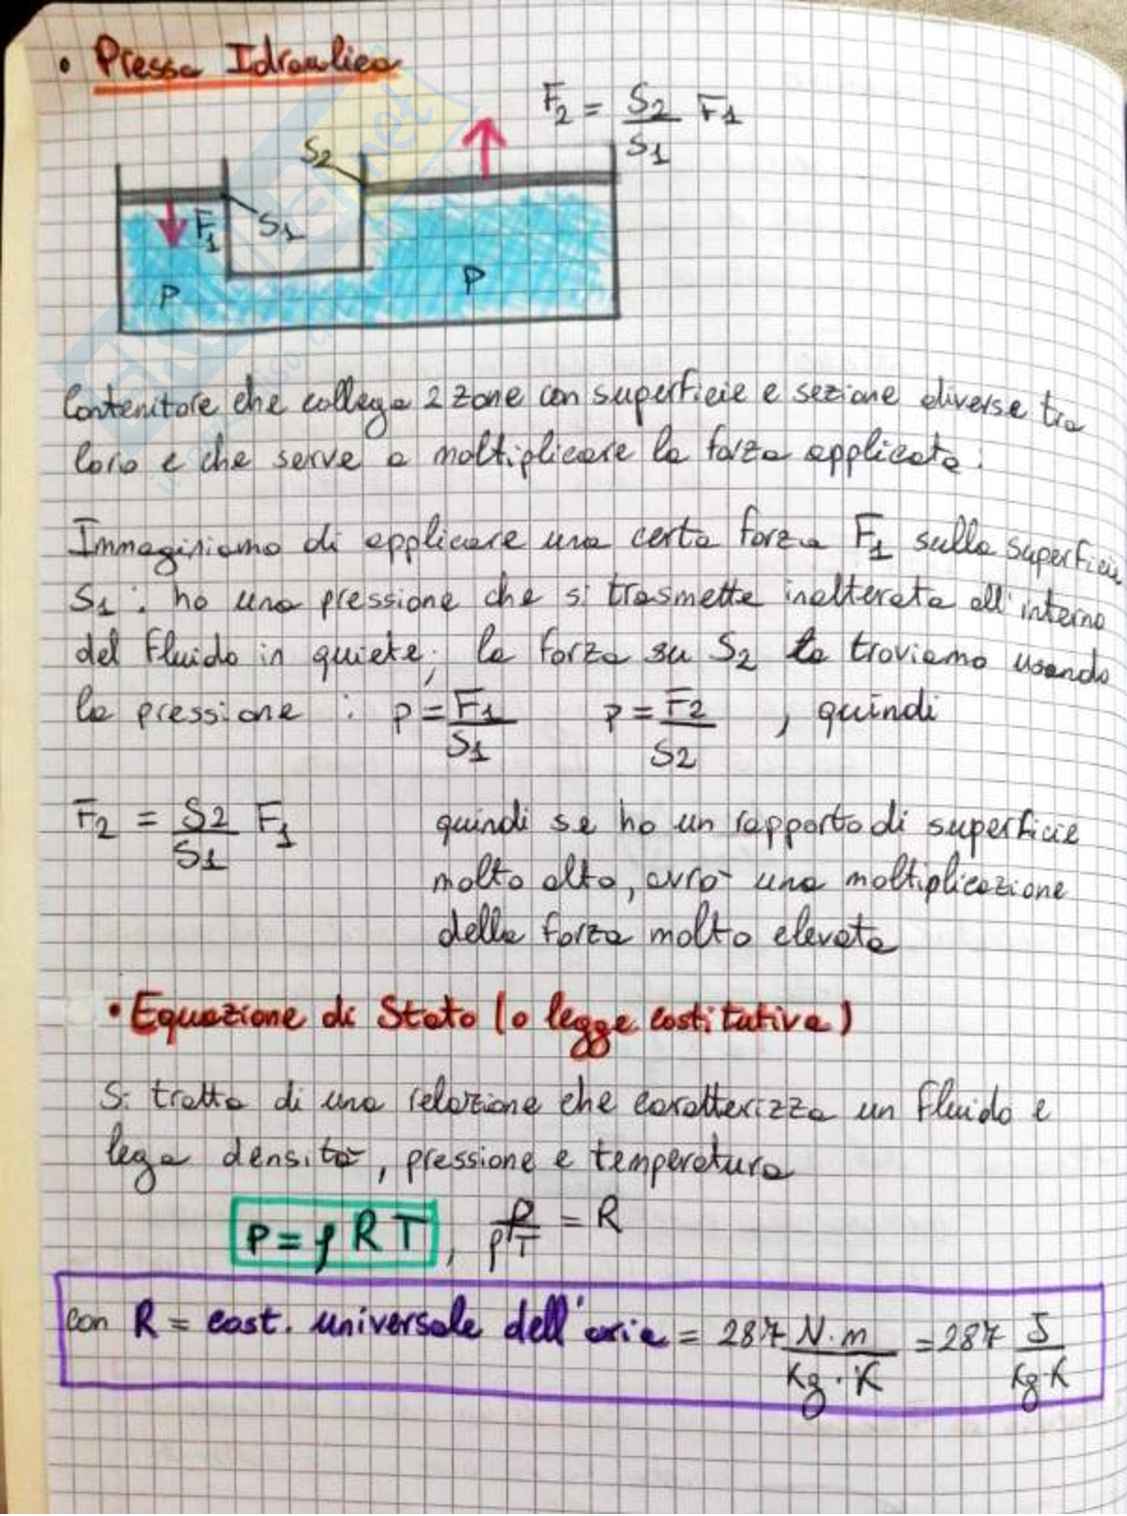 • Pressa Idraulica
F₂ = S₂/S₁ F₁
S₂
F₁
S₁
P
P
Contenitore che collega 2 zone con superficie e sezione diverse tra
loro e che serve a moltiplicare la forza applicata.
Immaginiamo di applicare una certa forza F₁ sulla superficie
S₁ : ho una pressione che si trasmette inalterata all'interno
del fluido in quiete; la forza su S₂ la troviamo usando
la pressione : P = F₁/S₁ P = F₂/S₂ , quindi
F₂ = S₂/S₁ F₁
quindi se ho un rapporto di superficie
molto alto, avrò una moltiplicazione
della forza molto elevata
• Equazione di Stato (o legge costitutiva)
Si tratta di una relazione che caratterizza un fluido e
lega densità, pressione e temperatura
P = ρ R T , P/ρT = R
con R = cost. universale dell'aria = 287 N·m/Kg·K = 287 J/Kg·K